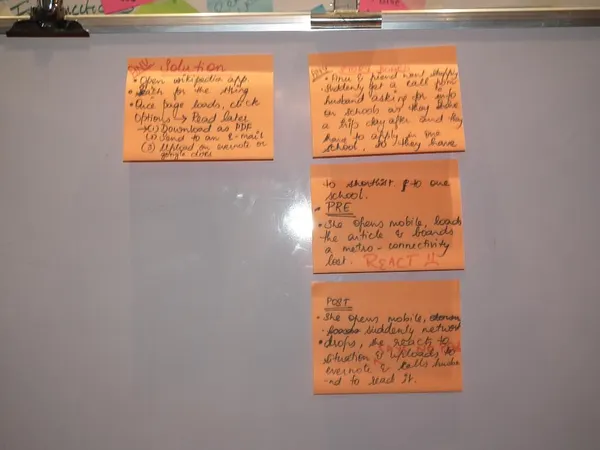 Solution
• Open wikipedia app.
• Search for the thing
• Once page loads, click
Options → Read later
→ (1) Download as PDF
(2) Send to an E-mail
(3) Upload on evernote or
google drive
• Anu & friend went
• Suddenly get a call from
husband asking for info
on schools as they have
a trip day after and they
have to apply in one
school, so they have
to shortlist to one
school.
• PRE
• She opens mobile, loads
the article & boards
a metro - connectivity
lost. REACT
POST
• She opens mobile,
suddenly network
• drops, she reacts to
situation & uploads to
evernote & tells husba
-nd to read it.